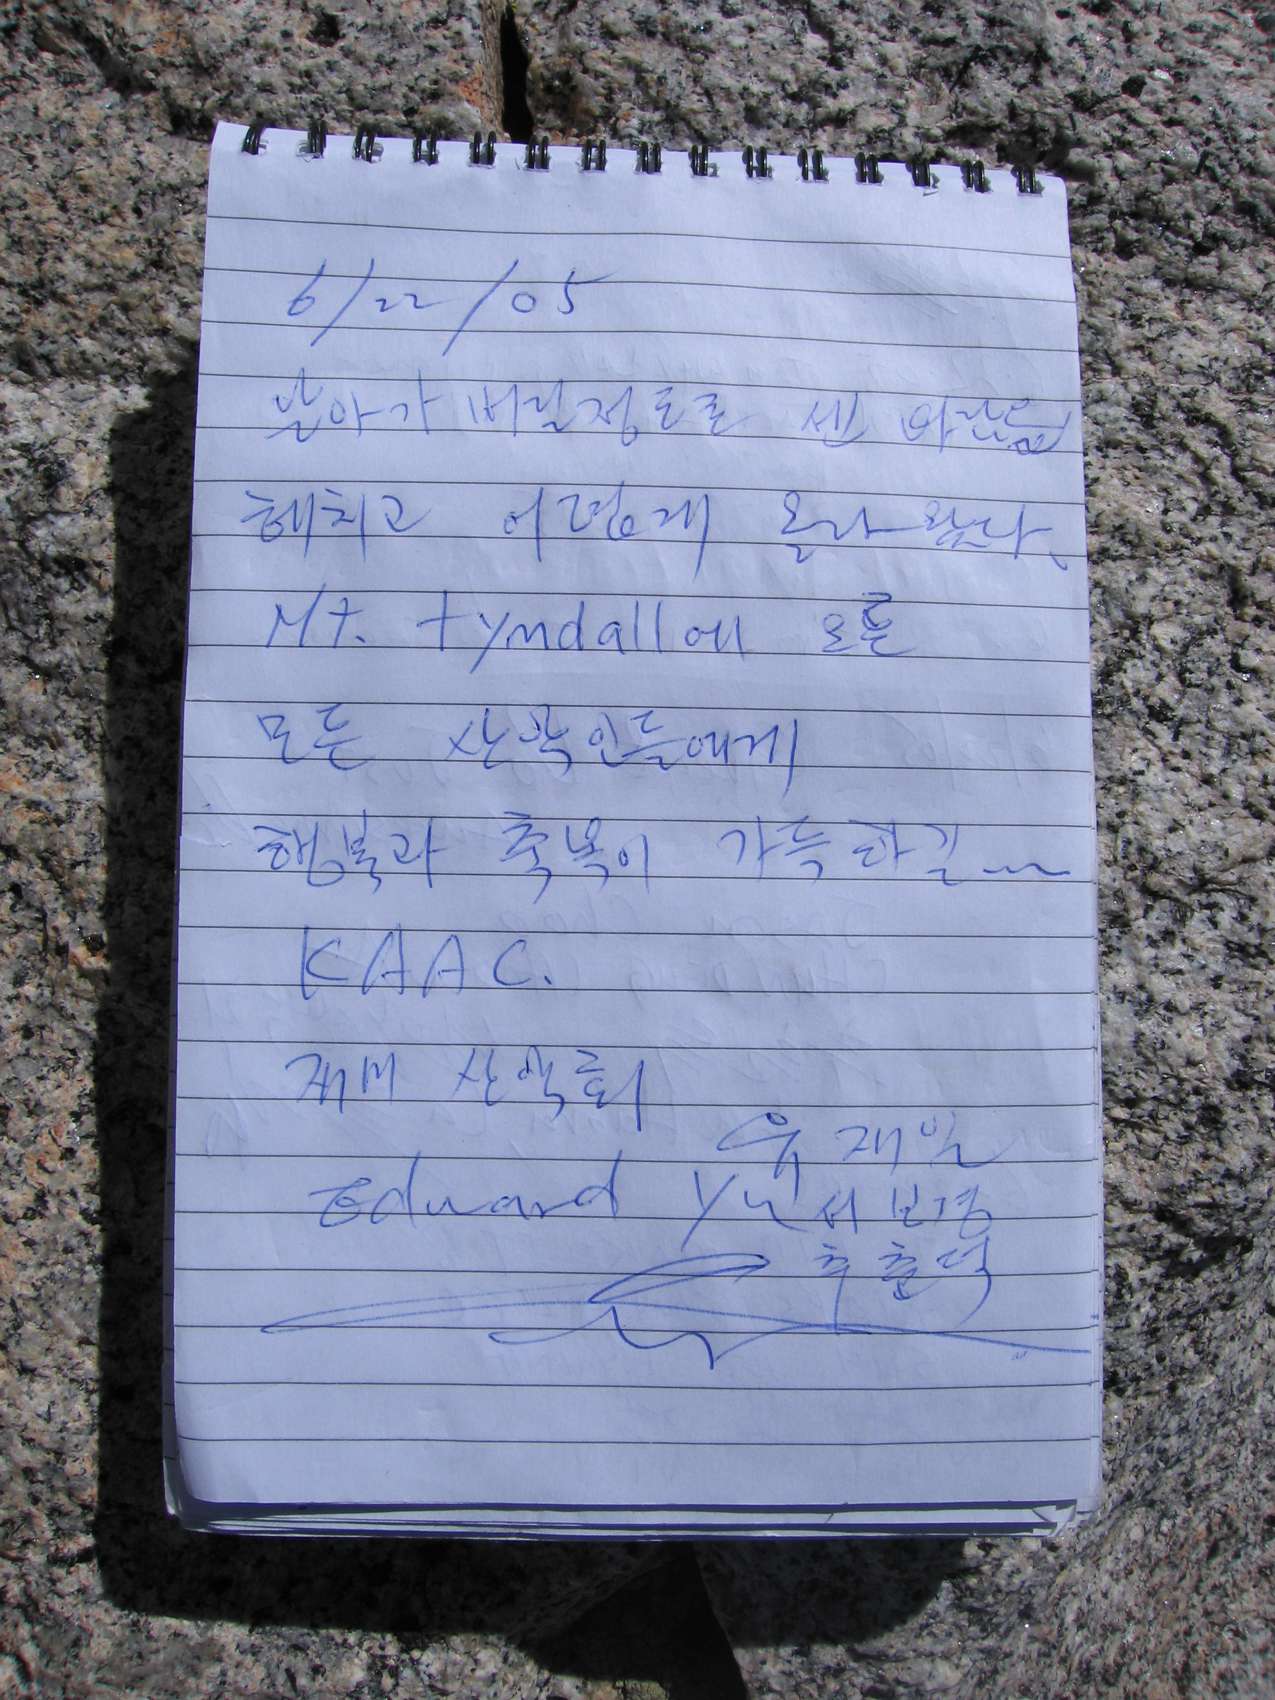 6/22/05
날아가 버릴정도로 센 바람을
헤치고 어렵게 올라왔다.
Mt. tyndall에 오른
모든 산악인들에게
행복과 축복이 가득하길~
KAAC.
재미 산악회
유재일
Edward Yun 서보경
추출덕